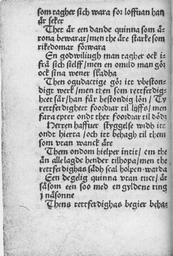 som tagher sich wara for loffuan han
är seker
Ther är een dande quinna som är
rona bewarar/ men the äre starke som
rikedomar förwara
En godwilliugh man tagher ock
frå sich sielff/ men en omilo man gör
ock sina wener skadha
Then ogudactige gör itt vbestons
digt werk/ men then som rettferdig
heet sår/ han får bestondig lön/ Ty
rettferdigheet foordrar til liffs/ men
fara epter ondt thet foordrar til dödh
Herren haffuer styggelse widh itt
ondt hierta/ och itt behagh til them
som vtan wanck äre
Them ondom hielper intit/ em the
än alle lagde hender tilhopa/ men the
rettferdighas sädh scal holpen warda
Een deyelig quinna vtan tuct/ är
såsom een soo med en gyldene ring
i näsonne
Thens rettferdighas begier behas